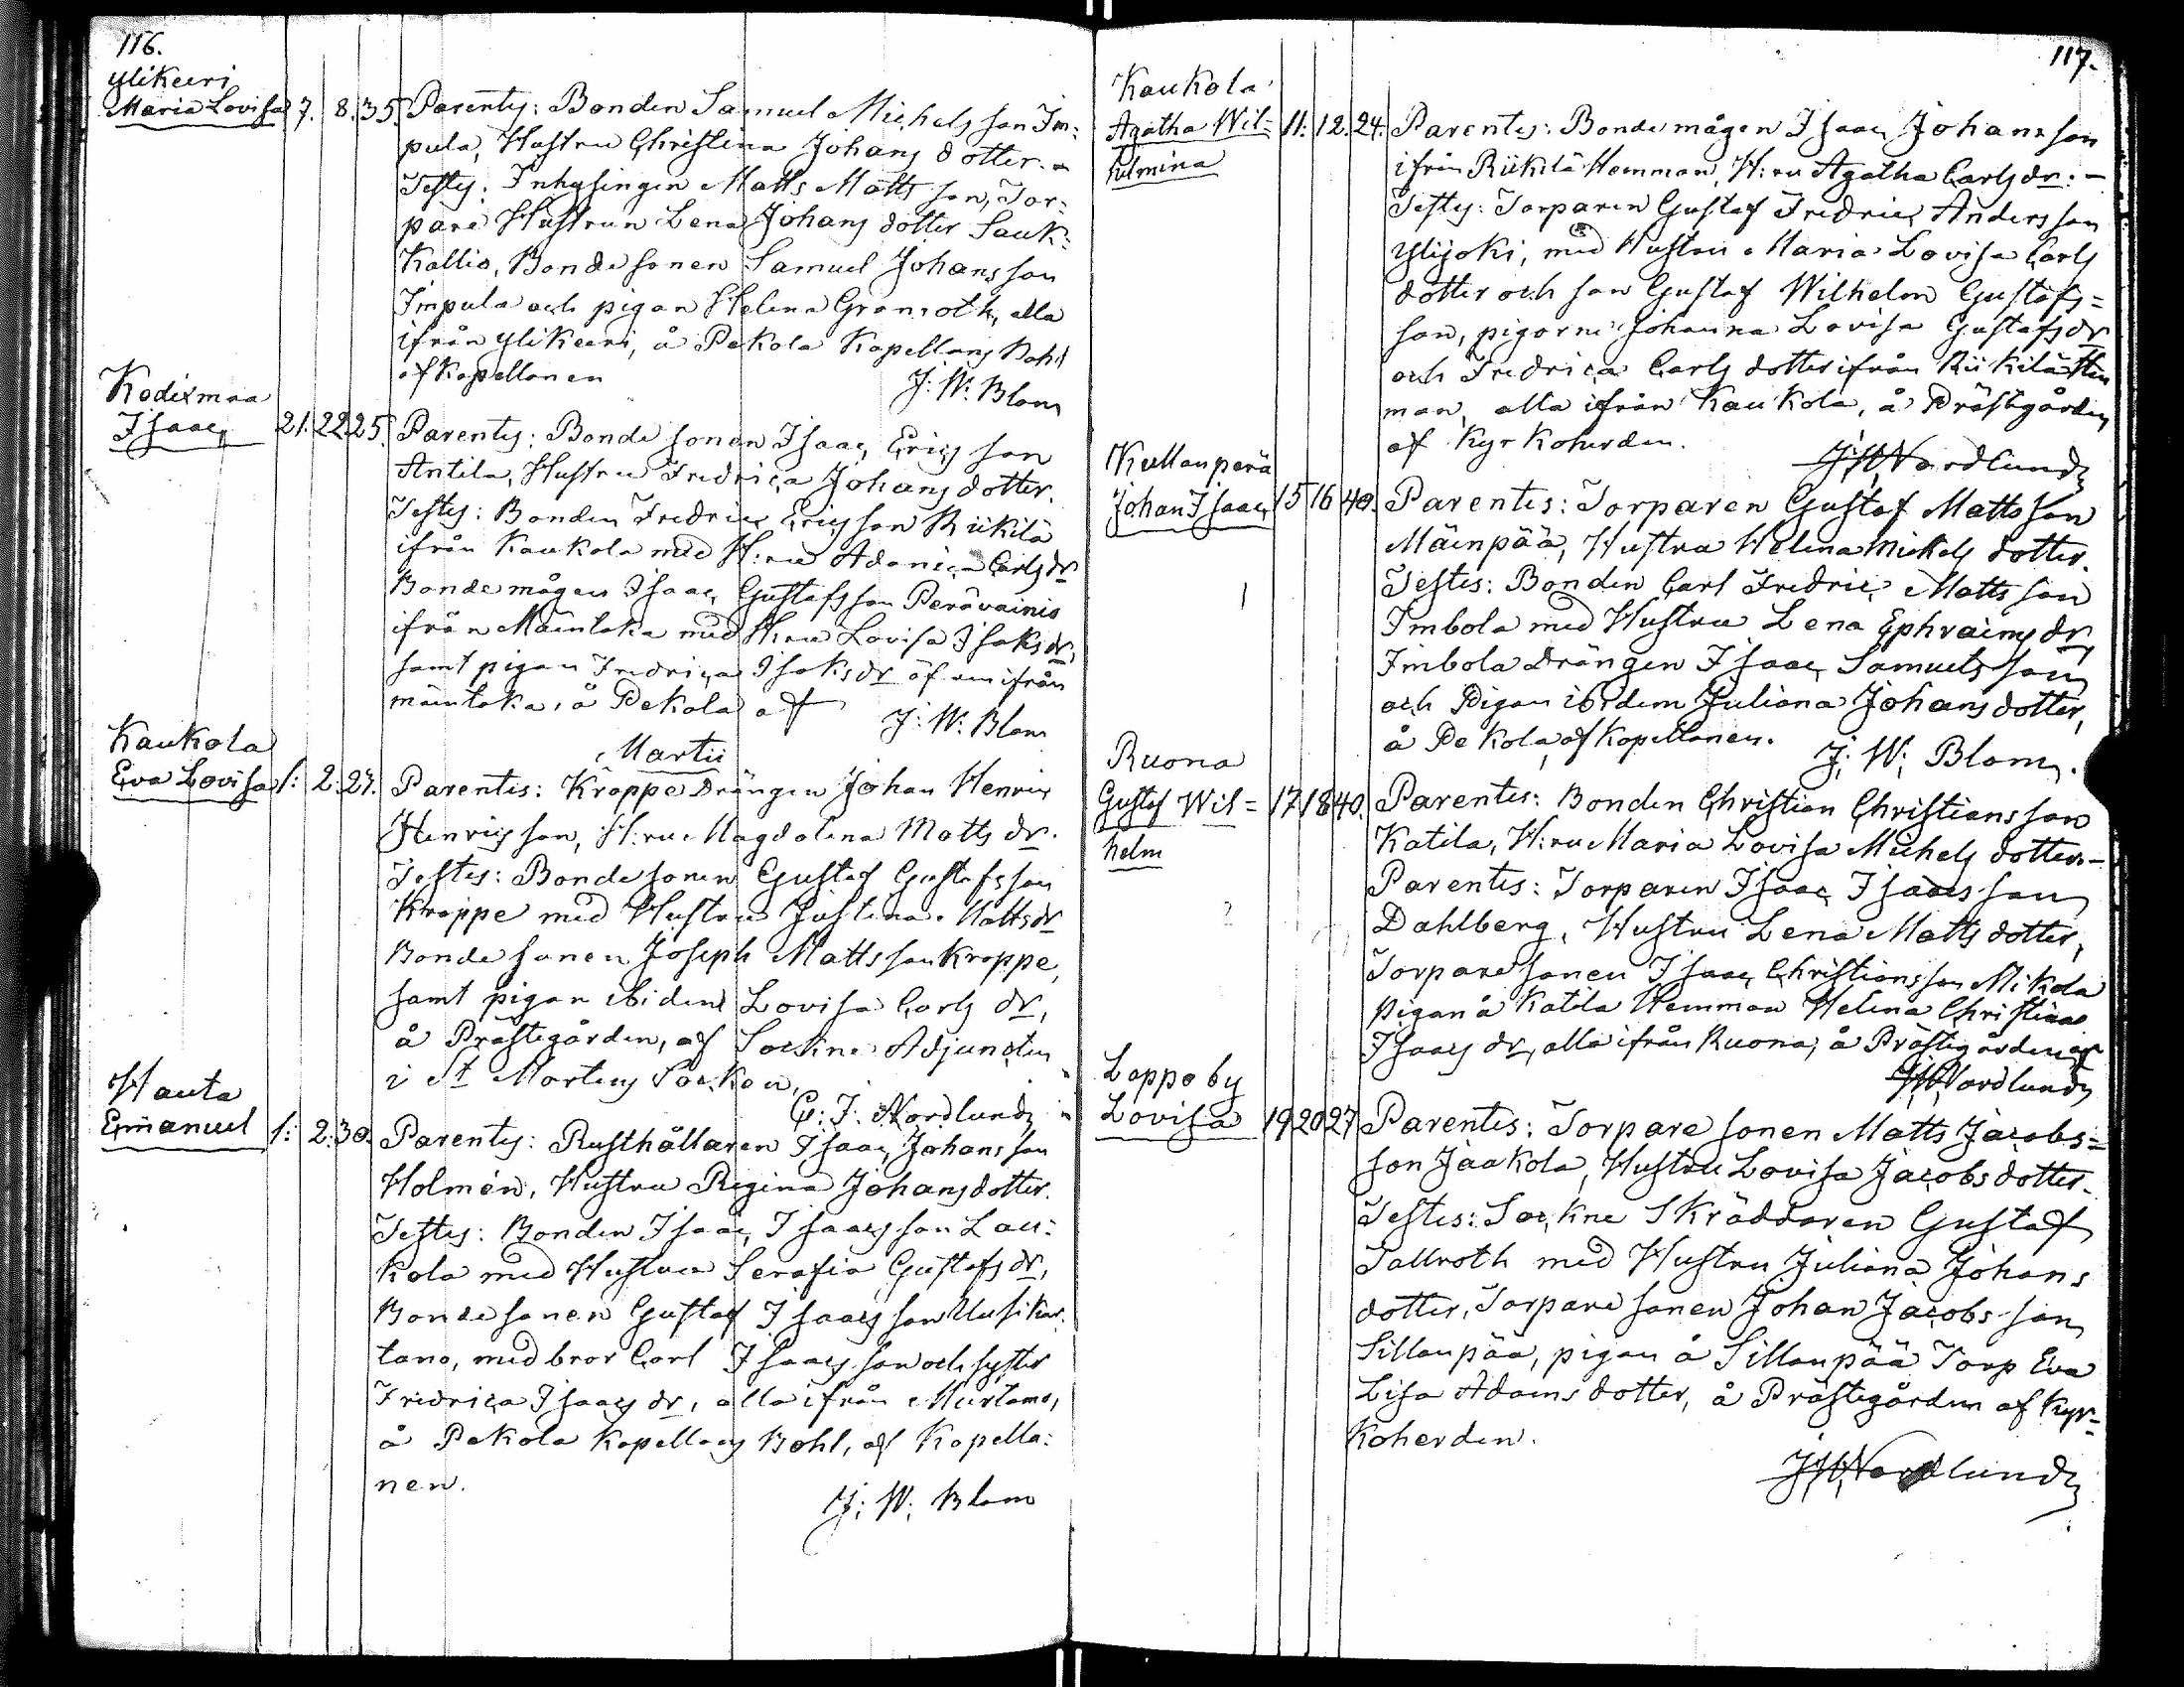 116.
Ylikeeri
Maria Lovisa 7. 8. 35. Parentes: Bonden Samuel Michelsson Im=
pula, Hustru Christina Johansdotter. -
Testes: Inhysingen Matts Mattsson, Tor=
pare Hustrun Lena Johansdotter Sauk=
Kallio, Bondesonen Samuel Johansson
Impula och pigan Helena Granroth, alla
ifrån Ylikeeri, å Pekola Kapellans Bohl
af Kapellanen
J: W: Blom
Kodixmaa
Isaac 21. 22. 25. Parentes: Bonde sonen Isaac Ericsson
Antila, Hustru Fredrica Johansdotter.
Testes: Bonden Fredric Ericsson Riikilä
ifrån Kaukola med H:ru Adonica Carlsdr
Bondemågen Isaac Gustafsson Perävainio
ifrån Mäntaka med H:ru Lovisa Isaksdr,
samt pigan Fredrica Isaksdr äfven ifrån
mäntaka, å Pekola af
J: W: Blom
Martii
Kaukola
Eva Lovisa 1: 2. 27. Parentes: Kroppe Drängen Johan Henric
Henricsson, H:ru Magdalena Mattsdr.
Testes: Bondesonen Gustaf Gustafsson
Kroppe med Hustru Justina Mattsdr
Bonde sonen Joseph Mattsson Kroppe,
samt pigan ibidem Lovisa Carlsdr,
å Prästegården, af Sockne Adjuncten
i St Martens Socken,
C: J: Nordlund
Hauta
Emanuel 1: 2. 30. Parentes: Rusthållaren Isaac Johansson
Holmén, Hustru Regina Johansdotter.
Testes: Bonden Isaac Isaacsson Lau=
kola med Hustru Serafia Gustafsdr,
Bondesonen Gustaf Isaacsson Uusikar
tano, med bror Carl Isaacsson och syster
Fredrica Isaacsdr, alla ifrån Murtamo,
å Pekola Kapellans Bohl, af Kapella=
nen.
J: W: Blom
117.
Kaukola
Agatha Wil= 11. 12. 24. Parentes: Bondemågen Isaac Johansson
helmina
ifrån Riikilä Hemman, H:ru Agatha Carlsdr. -
Testes: Torparen Gustaf Fredric Andersson
Ylijoki, med Hustru Maria Lovisa Carls
dotter och son Gustaf Wilhelm Gustafs=
son, pigorne Johanna Lovisa Gustafsdr
och Fredrica Carlsdotter ifrån Riikilä Hem
man, alla ifrån Kaukola, å Prästgården
af Kyrkoherden.
J W Nordlund
Kullanperä
Johan Isaac 15 16 40. Parentes: Torparen Gustaf Mattsson
Mäenpää, Hustru Helena Mickelsdotter.
Testes: Bonden Carl Fredric Mattsson
Imbola med Hustru Lena Ephraimsdr,
Imbola Drängen Isaac Samuelsson
och Pigan ibidem Juliana Johansdotter,
å Pekola, af Kapellanen.
J: W: Blom.
Ruona
Gustaf Wil= 17 18 40. Parentes: Bonden Christian Christiansson
helm
Katila, H:ru Maria Lovisa Michelsdotter. -
Parentes: Torparen Isaac Isaacsson
Dahlberg, Hustru Lena Mattsdotter,
Torparesonen Isaac Christiansson Mikola
Pigan å Katila Hemman Helena Christina
Isaacsdr, alla ifrån Ruona, å Prästegården af
J W Nordlund
Loppo by
Lovisa 19 20 27 Parentes: Torpare sonen Matts Jacobs=
son Jaakola, Hustru Lovisa Jacobsdotter. -
Testes: Sockne Skräddaren Gustaf
Tallroth med Hustru Juliana Johans
dotter, Torpare sonen Johan Jacobsson
Sillanpää, pigan å Sillanpää Torp Eva
Lisa Adamsdotter, å Prästegården af Kyr=
koherden.
J W Nordlund